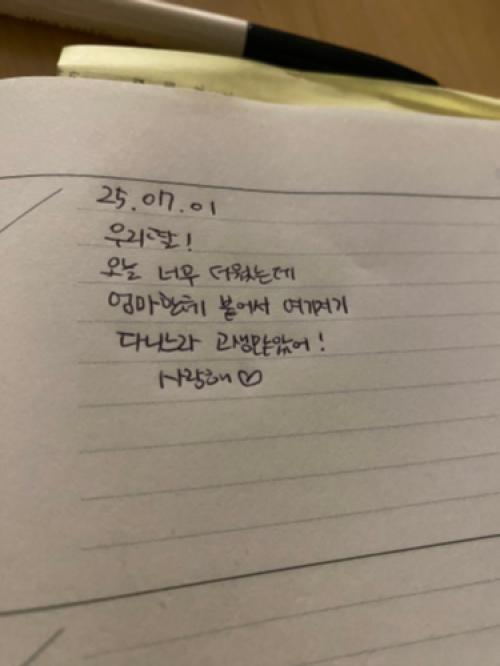 25.07.01
우리딸!
오늘 너무 더웠는데
엄마한테 붙어서 여기저기
다니느라 고생많았어!
사랑해♡